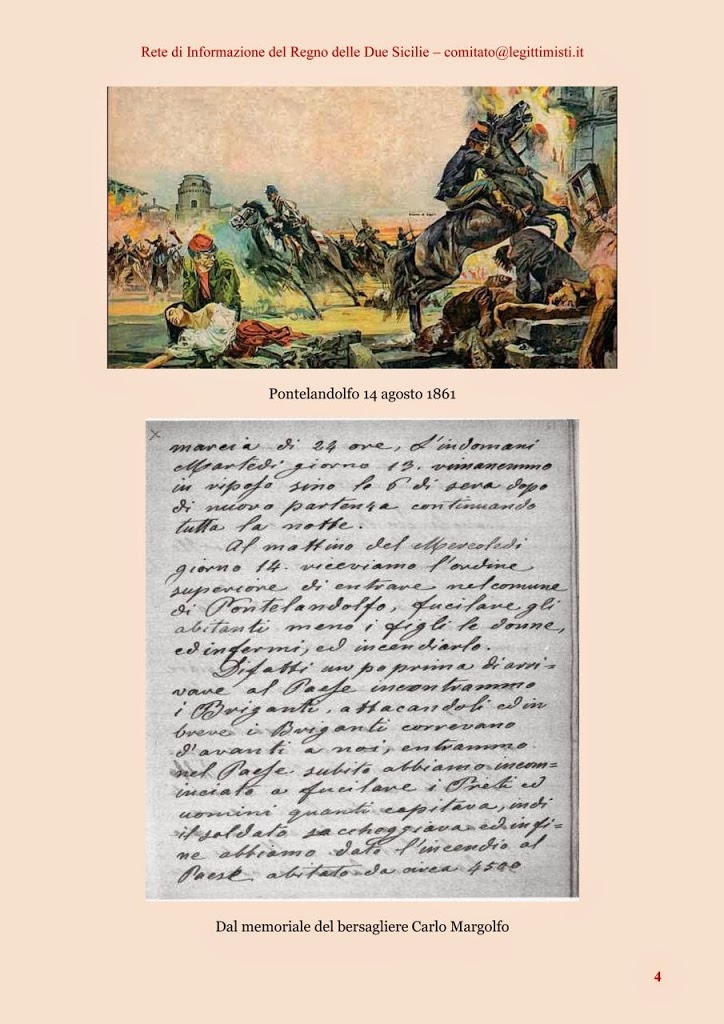 Rete di Informazione del Regno delle Due Sicilie – comitato@legittimisti.it
Pontelandolfo 14 agosto 1861
x
marcia di 24 ore, L'indomani
Martedi giorno 13. rimanemmo
in riposo sino le 6 di sera dopo
di nuovo partenza continuando
tutta la notte.
Al mattino del Mercoledi
giorno 14. riceviamo l'ordine
superiore di entrare nel comune
di Pontelandolfo, fucilare gli
abitanti meno i figli le donne,
ed infermi, ed incendiarlo.
Difatti un po prima di arri=
vare al Paese incontrammo
i Briganti, attacandoli ed in
breve i Briganti correvano
d'avanti a noi, entrammo
nel Paese subito abbiamo incom=
inciato a fucilare i Preti ed
uomini quanti capitava, indi
il soldato sacchoggiava ed infi=
ne abbiamo dato l'incendio al
Paese abitato da circa 4500
Dal memoriale del bersagliere Carlo Margolfo
4